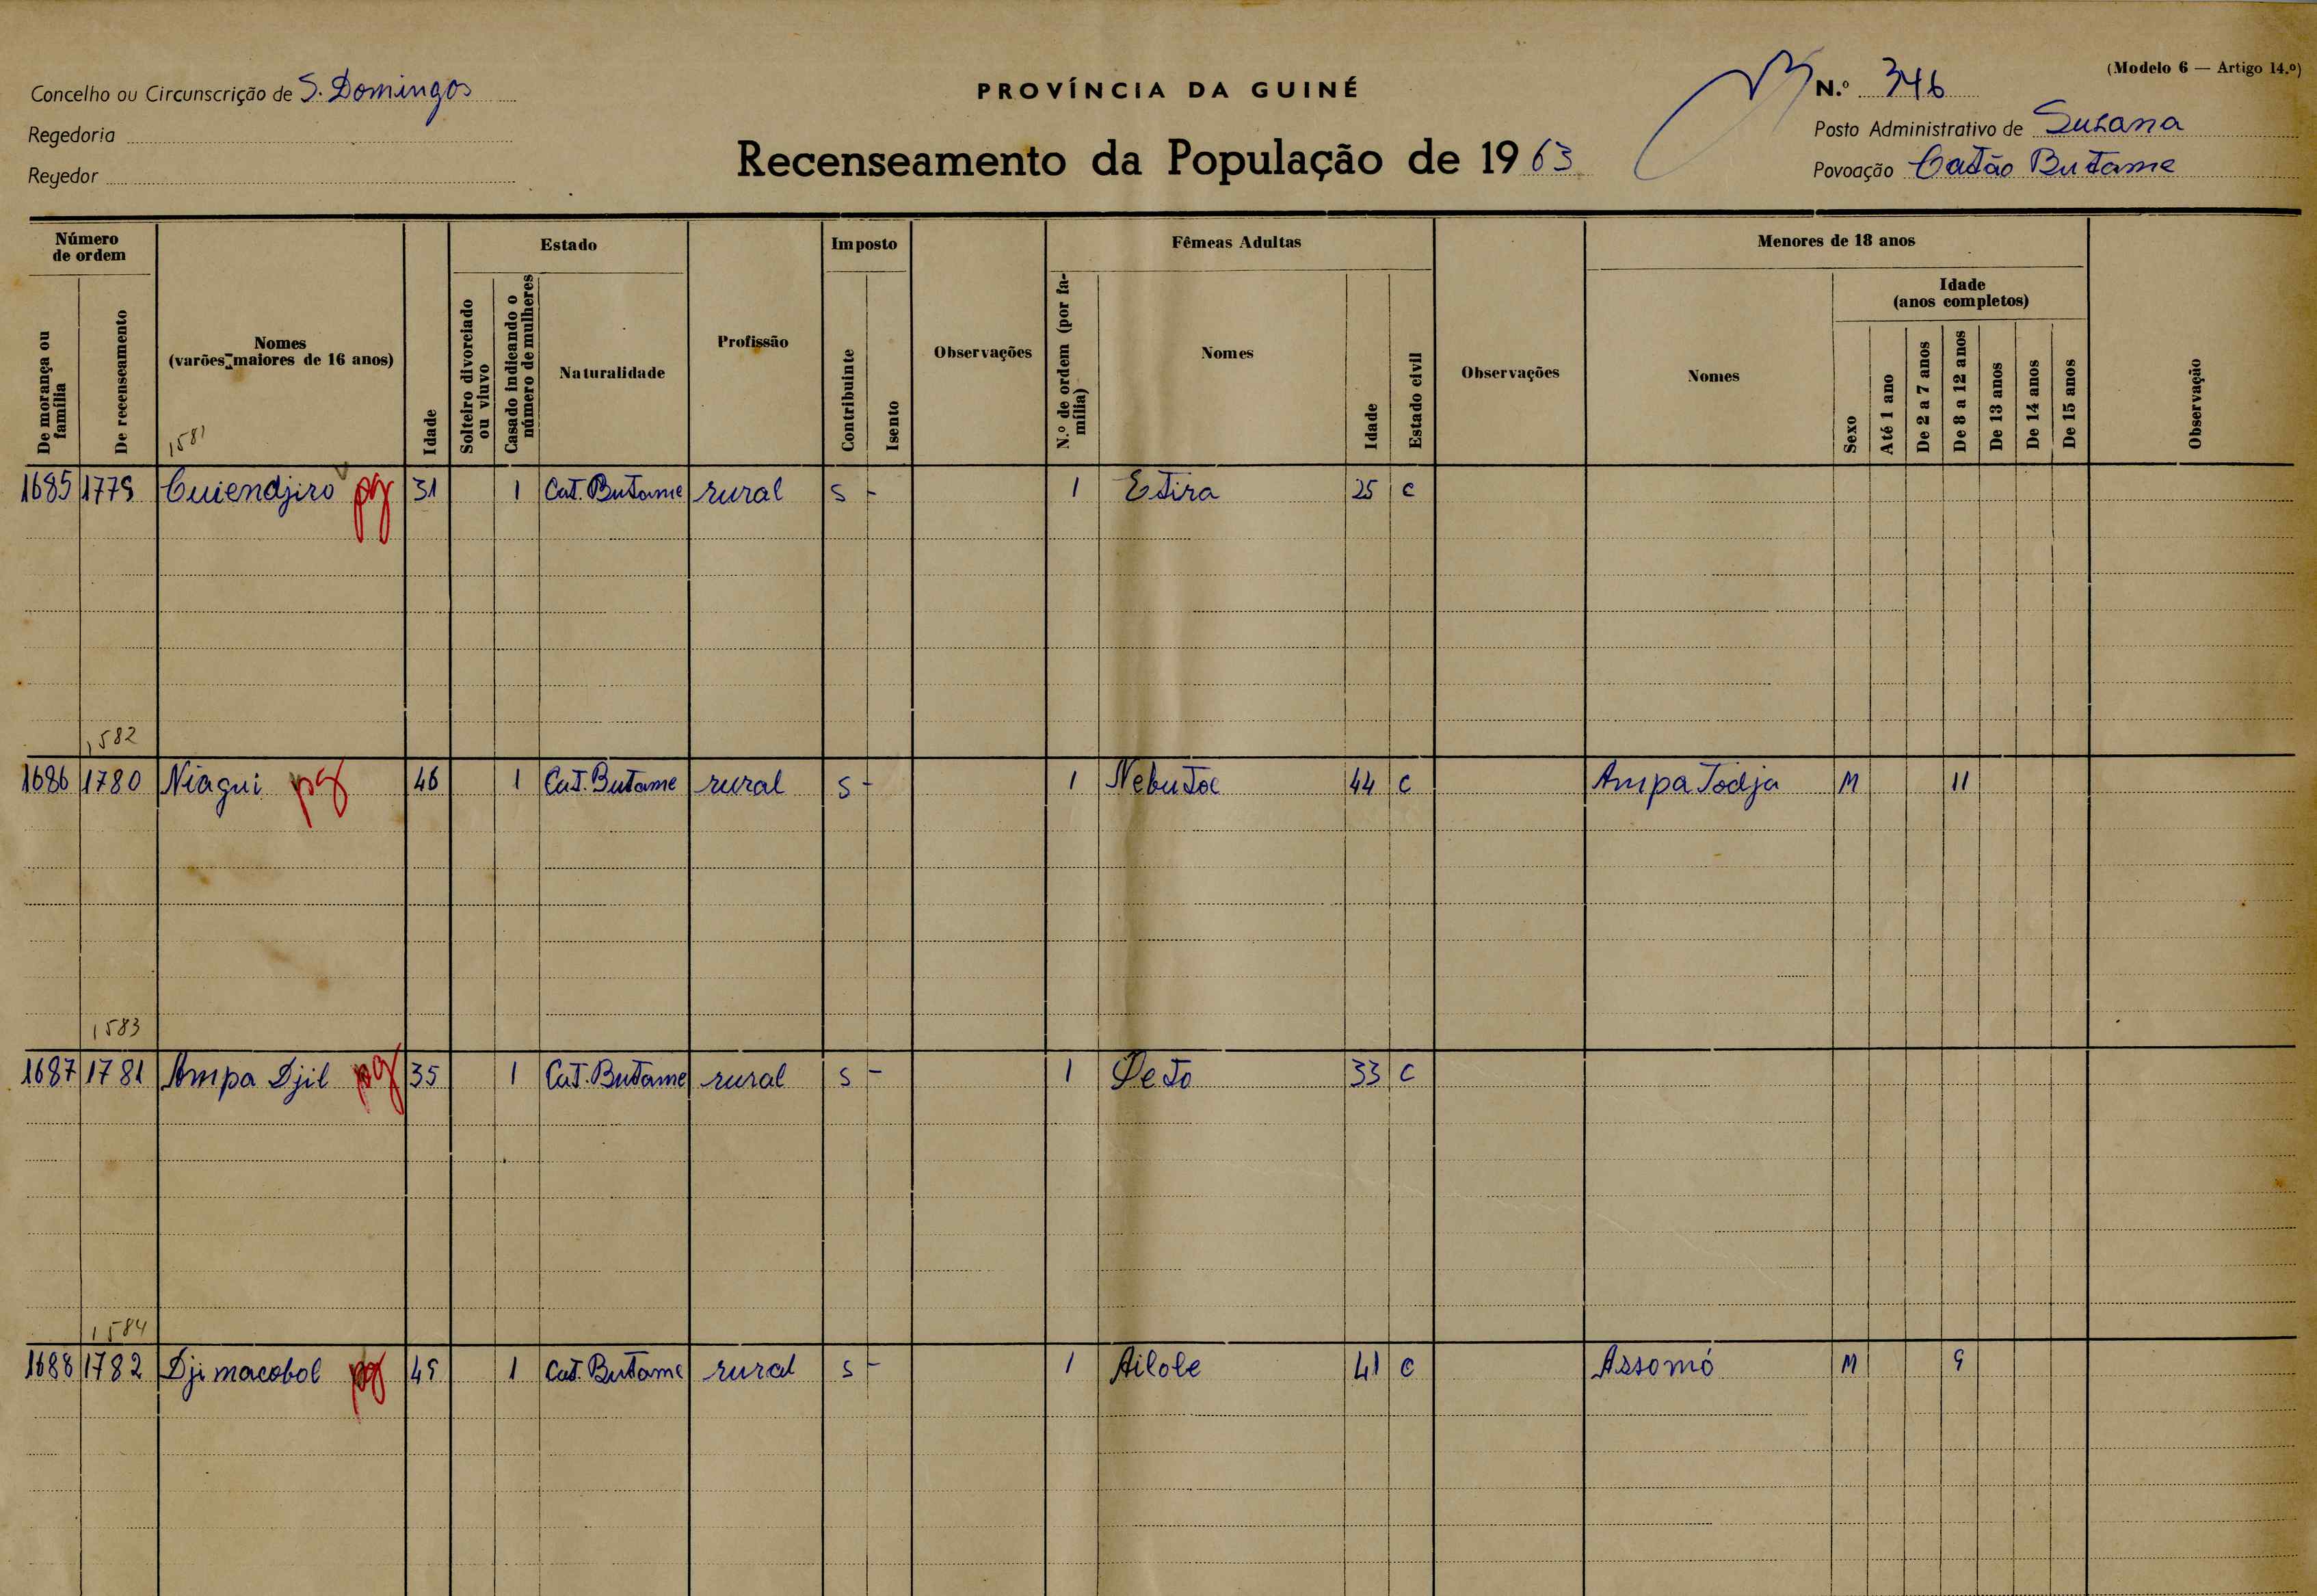 (Modelo 6 — Artigo 14.º)
Concelho ou Circunscrição de S. Domingos
PROVÍNCIA DA GUINÉ
N.º 346
Regedoria
Posto Administrativo de Susana
Regedor
Recenseamento da População de 1963
Povoação Catão Butame
Número de ordem
Estado
Imposto
Fêmeas Adultas
Menores de 18 anos
De morança ou família
De recenseamento
Nomes (varões maiores de 16 anos)
Idade
Solteiro divorciado ou viuvo
Casado indicando o número de mulheres
Naturalidade
Profissão
Contribuinte
Isento
Observações
N.º de ordem (por família)
Nomes
Idade
Estado civil
Observações
Nomes
Sexo
Idade (anos completos)
Até 1 ano
De 2 a 7 anos
De 8 a 12 anos
De 13 anos
De 14 anos
De 15 anos
Observação
1581
1685 1779 Cuiendjiro pg 31 1 Cat. Butame rural s - 1 Etira 25 c
1582
1686 1780 Niagui pg 46 1 Cat. Butame rural s - 1 Nebutoc 44 c Ampa Todja M 11
1583
1687 1781 Ampa Djil pg 35 1 Cat. Butame rural s - 1 Peto 33 c
1584
1688 1782 Djimacobol pg 49 1 Cat. Butame rural s - 1 Ailole 41 c Assomó M 9